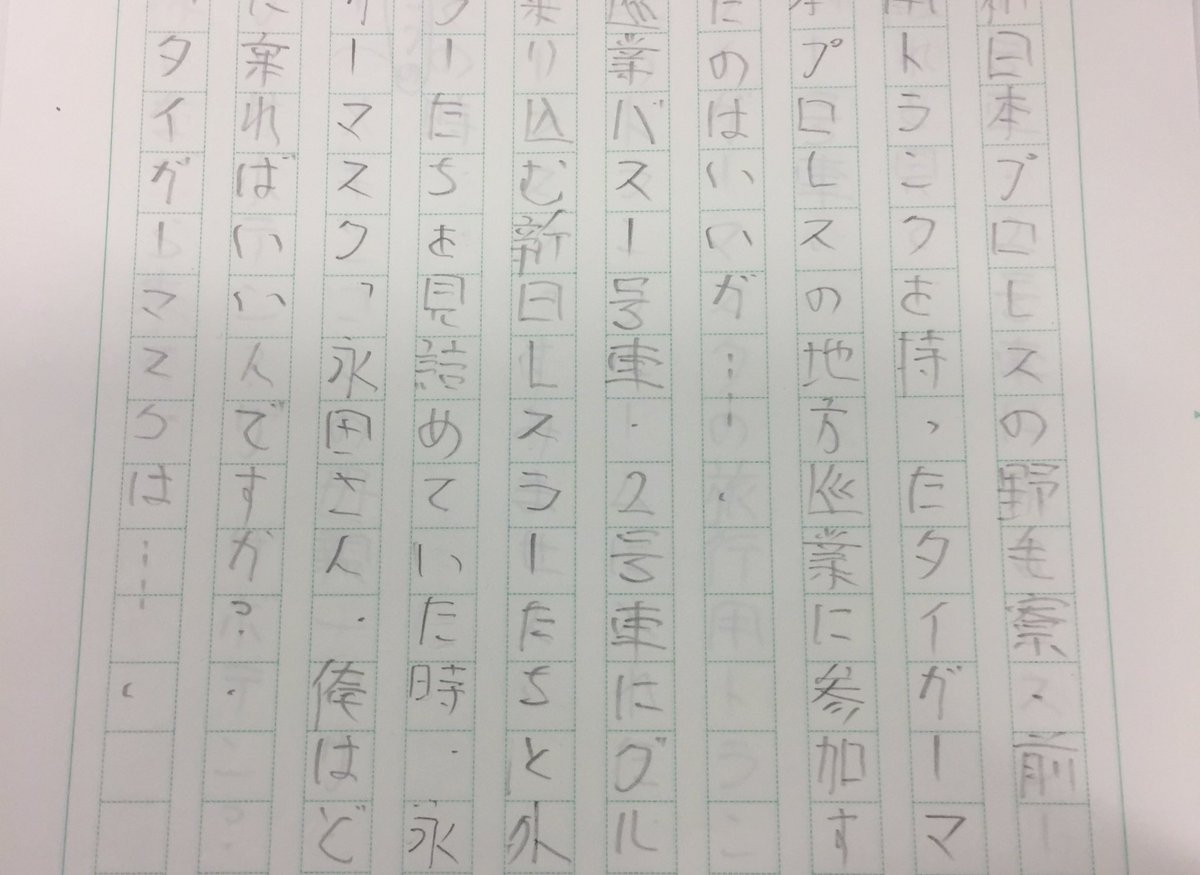 日本プロレスの野毛寮・前
トランクを持ったタイガーマ
プロレスの地方巡業に参加す
のはいいが……・
巡業バス1号車・2号車にグル
り込む新日レスラーたちと外
ーたちを見詰めていた時・永
ーマスク「永田さん・俺はど
棄ればいいんですか?・
タイガーマスクは……・